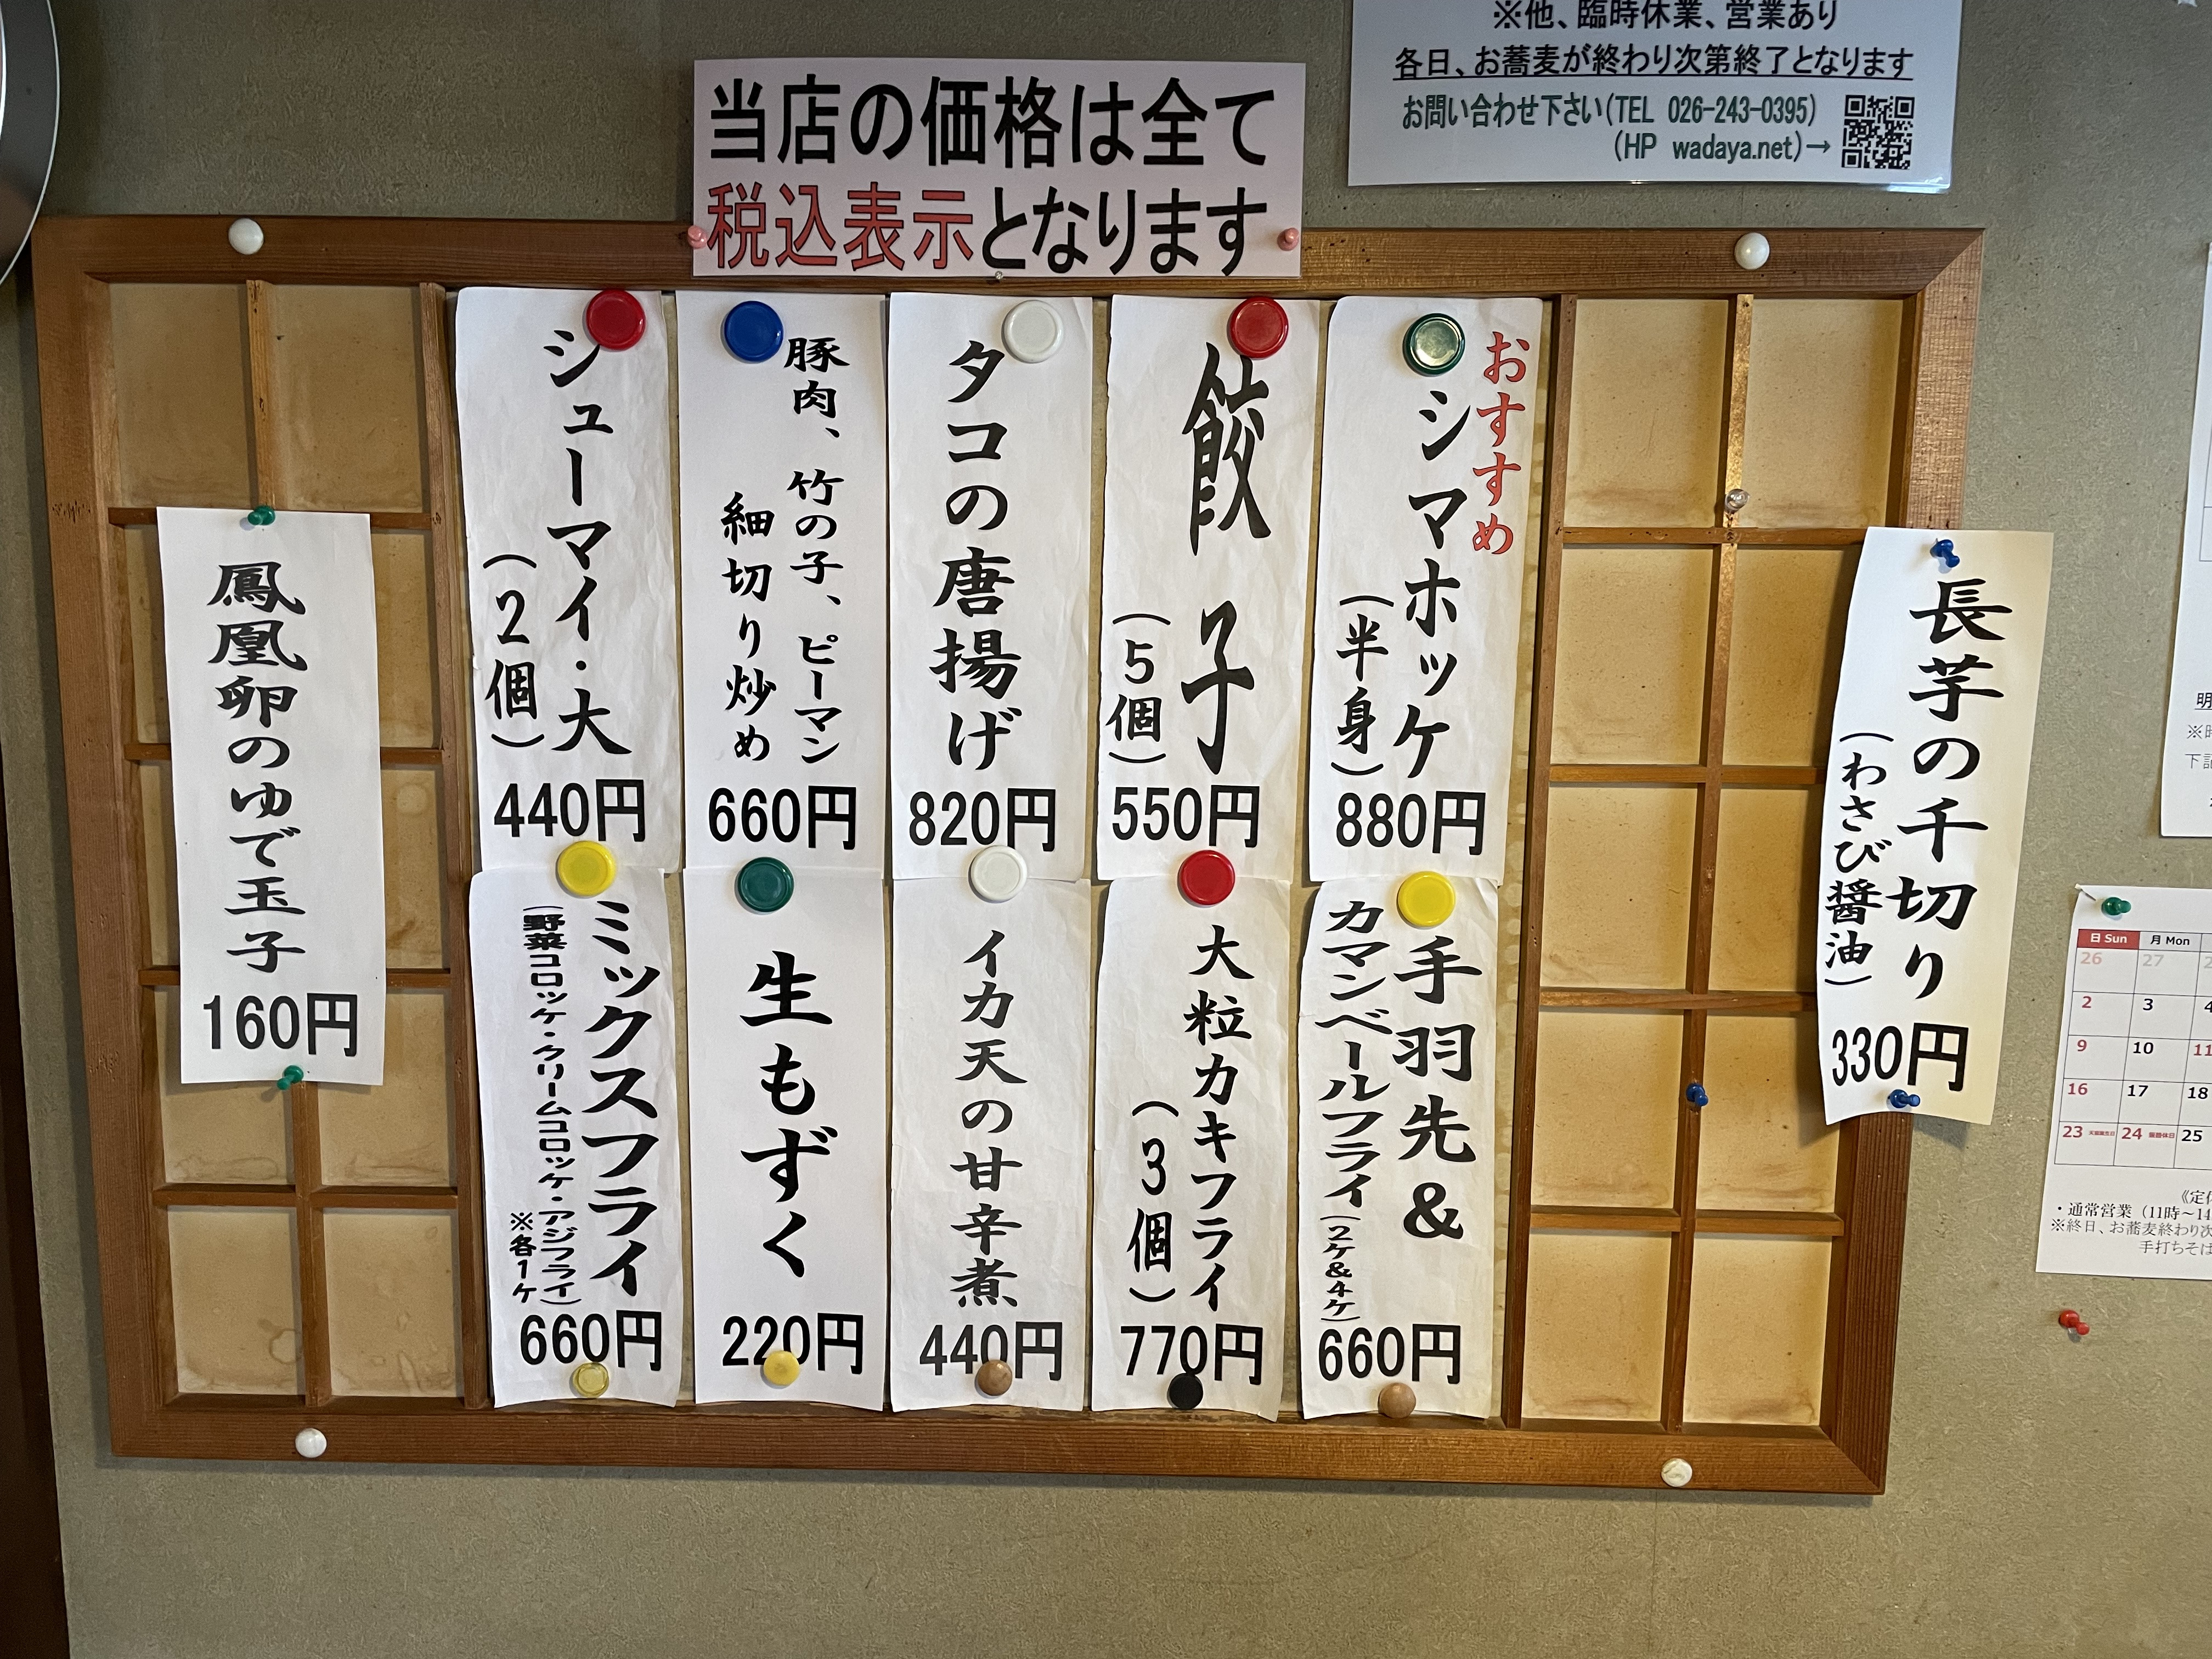 ※他、臨時休業、営業あり
各日、お蕎麦が終わり次第終了となります
お問い合わせ下さい(TEL 026-243-0395)
(HP wadaya.net)→
当店の価格は全て
税込表示となります
長芋の千切り
(わさび醤油)
330円
おすすめ
シマホッケ
(半身)
880円
餃子
(5個)
550円
タコの唐揚げ
820円
豚肉、竹の子、ピーマン
細切り炒め
660円
シューマイ・大
(2個)
440円
手羽先&
カマンベールフライ(2ケ&4ケ)
660円
大粒カキフライ
(3個)
770円
イカ天の甘辛煮
440円
生もずく
220円
ミックスフライ
(野菜コロッケ・クリームコロッケ・アジフライ)
※各1ケ
660円
鳳凰卵のゆで玉子
160円
日 Sun 月 Mon
26 27
2 3 4
9 10 11
16 17 18
23 24 25
・通常営業(11時～14
※終日、お蕎麦終わり次
手打ちそば